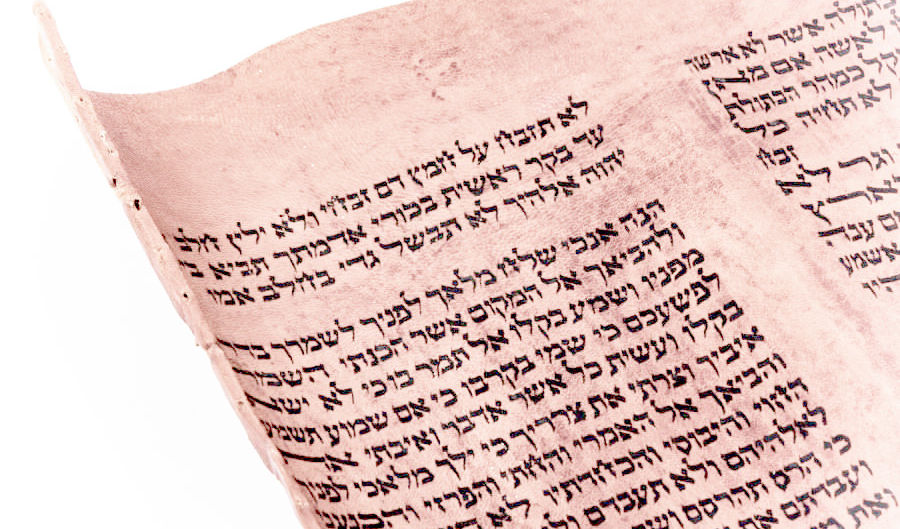 בתולה אשר לא ארשה
לאשה אם מאן
כמהר הבתולת
לא תחיה כל
זבח
וגר לא
אשמע
לא תזבח על חמץ דם זבחי ולא ילין חלב
עד בקר ראשית בכורי אדמתך תביא
יהוה אלהיך לא תבשל גדי בחלב אמו
הנה אנכי שלח מלאך לפניך לשמרך
ולהביאך אל המקום אשר הכנתי השמר
מפניו ושמע בקלו אל תמר בו כי לא ישא
לפשעכם כי שמי בקרבו כי אם שמוע תשמע
בקלו ועשית כל אשר אדבר ואיבתי את
איביך וצרתי את צרריך כי ילך מלאכי לפניך
והביאך אל האמרי והחתי והפרזי והכנעני
החוי והיבוסי והכחדתיו לא
לאלהיהם ולא תעבדם ולא
כי הרס תהרסם
ועבדתם את
ואת